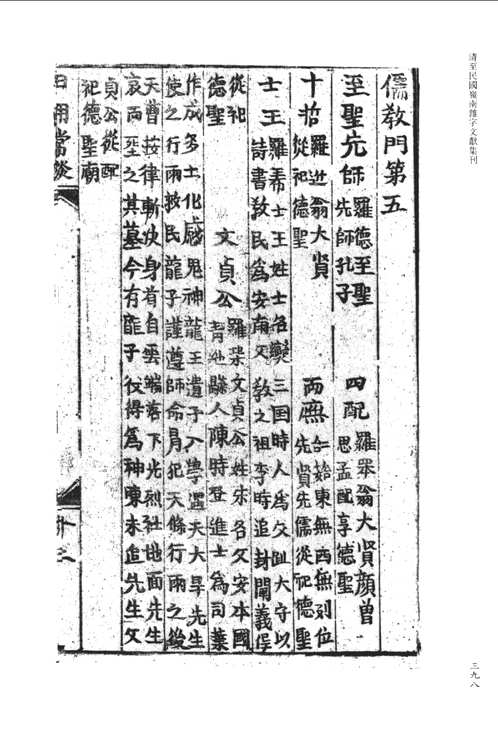 清至民國嶺南雜字文獻集刊
儒教門第五
至聖先師
羅德至聖
先師孔子
四配
羅眾翁大賢顏曾
思孟配享德聖
十哲
羅辺翁大賢
從祀德聖
両廡
東無西無列位
先賢先儒從祀德聖
士王
羅希士王姓士名燮三国時人為交趾大守以
詩書教民為安南文教之祖李時追封開義侯
從祀
德聖
文貞公
羅眾文貞公姓朱名文安本國
青池縣人陳時登進士為司業
作成多士化感鬼神龍王遣子入學遇天大旱先生
使之行雨救民龍子謹遵師命肯犯天條行雨之後
天曹按律斬決身首自雲端落下光烈社地面先生
哀而埊之其墓今有龍子役得為神陳末追先生文
貞公從配
祀德聖廟
日用常談
三九八